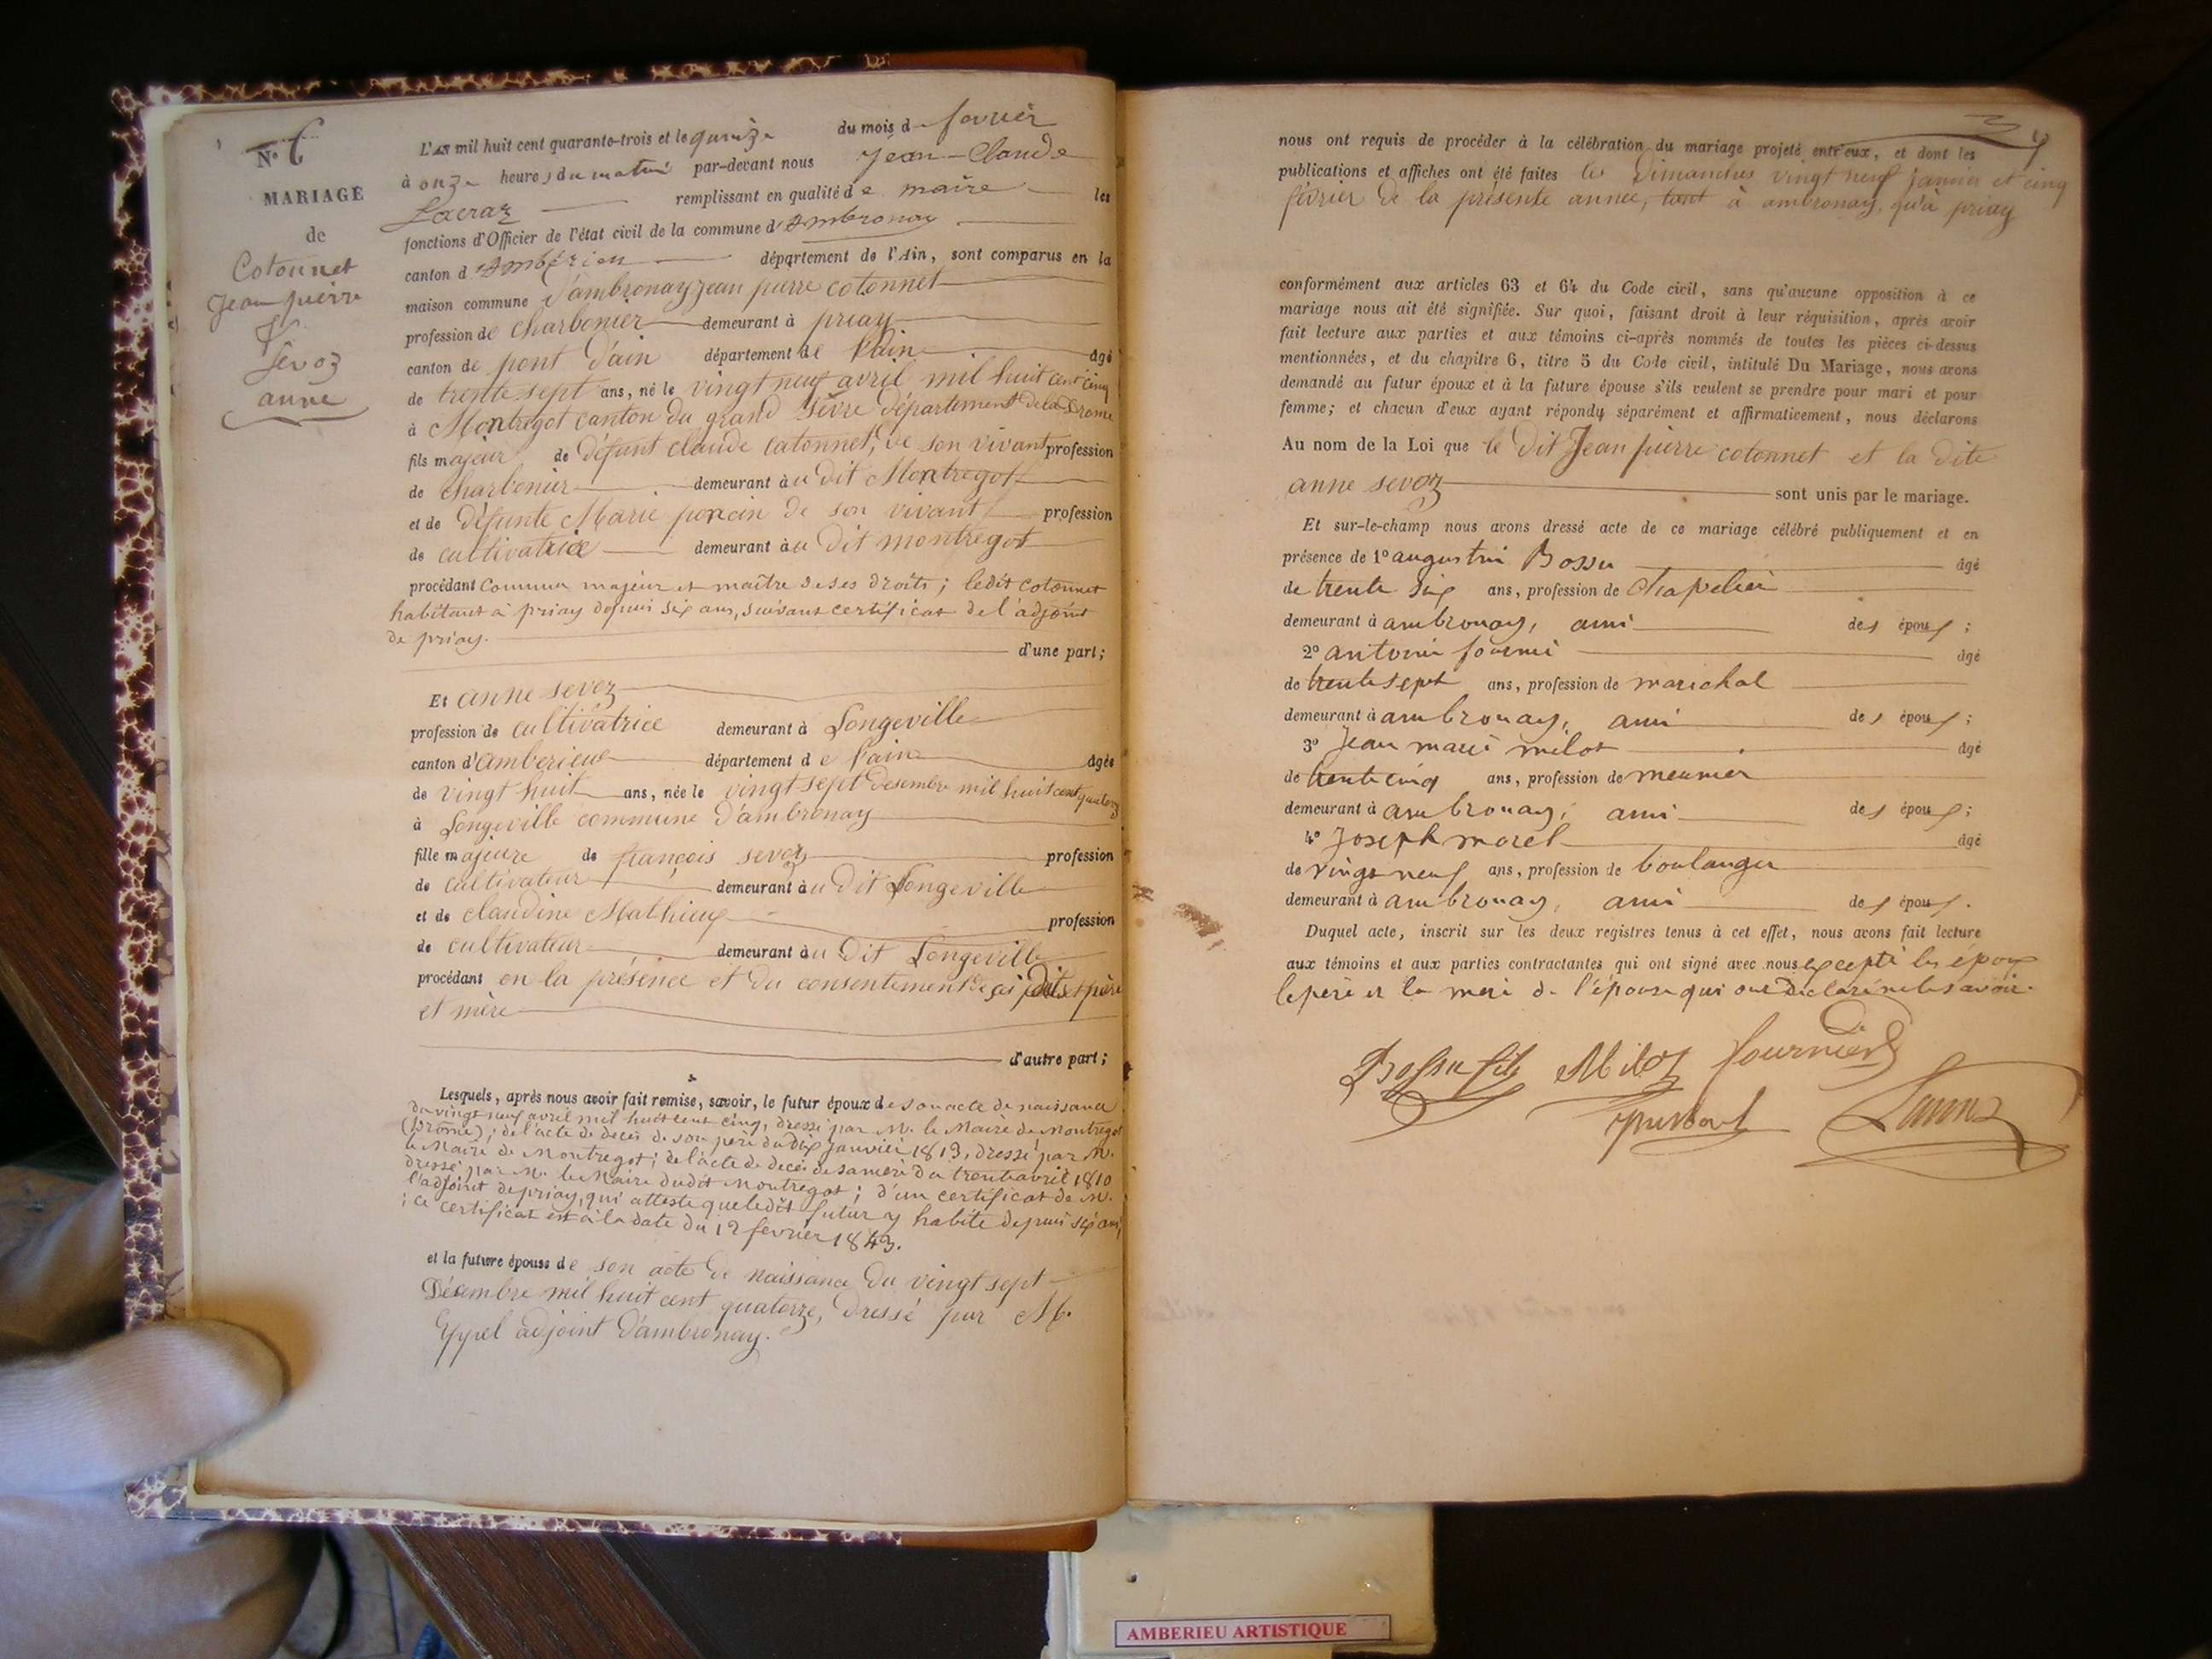 N° 6
MARIAGE
de
Cotonnet
Jean pierre
&
Sevoz
anne
L'an mil huit cent quarante-trois et le quinze du mois d février
à onze heures du matin par-devant nous Jean-Claude
remplissant en qualité de maire les
fonctions d'Officier de l'état civil de la commune d'Ambronay
canton d'Ambérieu département de l'Ain, sont comparus en la
maison commune d'ambronay jean pierre cotonnet
profession de charbonier demeurant à priay
canton de pont d'ain département de l'ain âgé
de trente sept ans, né le vingt neuf avril mil huit cent cinq
à Montregot canton du grand Sèvre département de la Drome
fils majeur de défunt claude catonnet, de son vivant profession
de charbonier demeurant au dit Montregot
et de défunte Marie poncin de son vivant profession
de cultivatrice demeurant au dit montregot
procédant comme majeur et maître de ses droits; ledit cotonnet
habitant à priay depuis six ans, suivant certificat de l'adjoint
de priay.
d'une part;
Et anne sevoz
profession de cultivatrice demeurant à Longeville
canton d'amberieux département de l'ain âgée
de vingt huit ans, née le vingt sept desembre mil huit cent quatorze
à Longeville commune d'ambronay
fille majeure de françois sevoz profession
de cultivateur demeurant au dit Longeville
et de claudine Mathieux profession
de cultivateur demeurant au dit Longeville
procédant en la présence et du consentement de ses dits père
et mère
d'autre part;
Lesquels, après nous avoir fait remise, savoir, le futur époux de son acte de naissance
du vingt neuf avril mil huit cent cinq, dressé par M. le Maire de Montregot
(Drôme); de l'acte de décès de son père du dix janvier 1813, dressé par M.
le Maire de Montregot; de l'acte de décès de sa mère du trente avril 1810
dressé par M. le Maire dudit Montregot; d'un certificat de M.
l'adjoint de priay, qui atteste que ledit futur y habite depuis six ans,
; ce certificat est à la date du 12 février 1843.
et la future épouse de son acte de naissance du vingt sept
Décembre mil huit cent quatorze, dressé par M.
adjoint d'ambronay.
nous ont requis de procéder à la célébration du mariage projeté entr'eux, et dont les
publications et affiches ont été faites les Dimanches vingt neuf janvier et cinq
février de la présente année, tant à ambronay, qu'à priay
conformément aux articles 63 et 64 du Code civil, sans qu'aucune opposition à ce
mariage nous ait été signifiée. Sur quoi, faisant droit à leur réquisition, après avoir
fait lecture aux parties et aux témoins ci-après nommés de toutes les pièces ci-dessus
mentionnées, et du chapitre 6, titre 5 du Code civil, intitulé Du Mariage, nous avons
demandé au futur époux et à la future épouse s'ils veulent se prendre pour mari et pour
femme; et chacun d'eux ayant répondu séparément et affirmativement, nous déclarons
Au nom de la Loi que le dit Jean pierre cotonnet et la dite
anne sevoz sont unis par le mariage.
Et sur-le-champ nous avons dressé acte de ce mariage célébré publiquement et en
présence de 1° augustin Bossu âgé
de trente six ans, profession de chapelier
demeurant à ambronay, ami des époux;
2° antoine fournié âgé
de trente sept ans, profession de marichal
demeurant à ambronay, ami des époux;
3° Jean marie milot âgé
de trente cinq ans, profession de meunier
demeurant à ambronay, ami des époux;
4° Joseph morel âgé
de vingt neuf ans, profession de boulanger
demeurant à ambronay, ami des époux.
Duquel acte, inscrit sur les deux registres tenus à cet effet, nous avons fait lecture
aux témoins et aux parties contractantes qui ont signé avec nous excepté les époux
le père et la mère de l'épouse qui ont déclaré ne le savoir.
Bossu fils Miloz fournier
AMBERIEU ARTISTIQUE